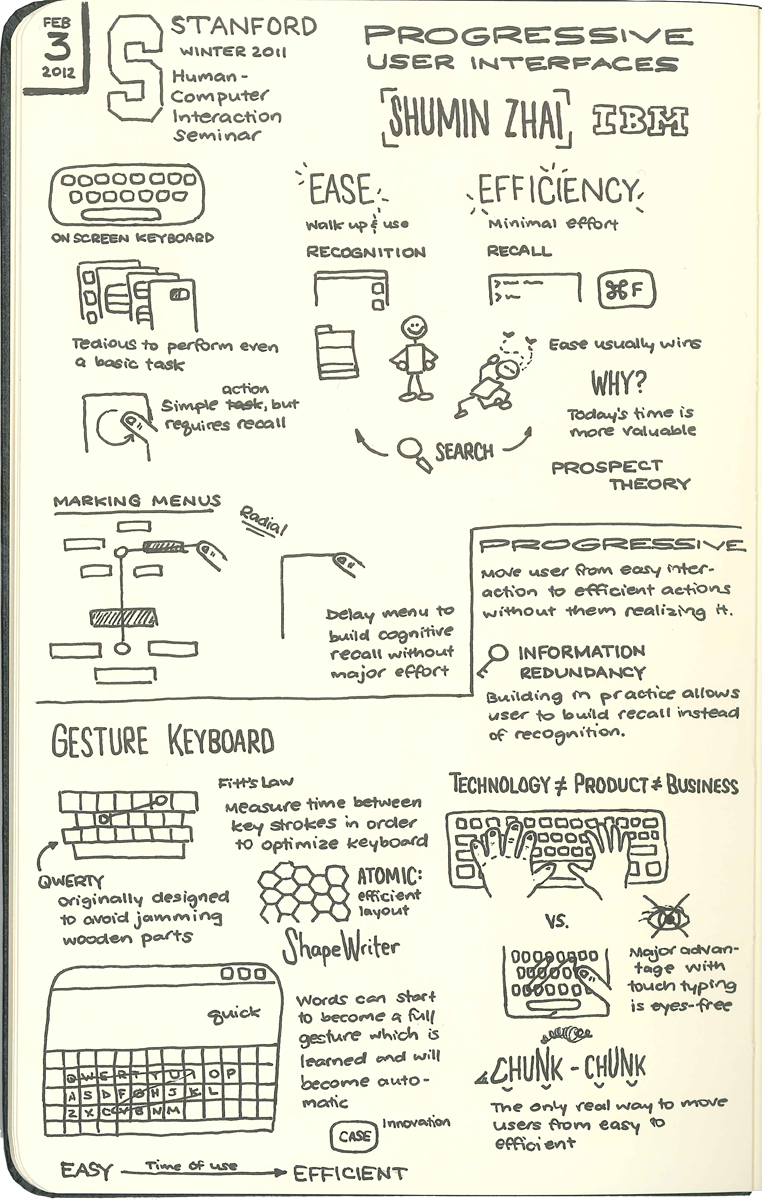 FEB
3
2012
S
STANFORD
WINTER 2011
Human-
Computer
Interaction
Seminar
PROGRESSIVE
USER INTERFACES
[SHUMIN ZHAI]
IBM
ON SCREEN KEYBOARD
EASE
Walk up & use
RECOGNITION
EFFICIENCY
Minimal effort
RECALL
⌘F
Tedious to perform even
a basic task
action
Simple task, but
requires recall
Ease usually wins
WHY?
Today's time is
more valuable
SEARCH
PROSPECT
THEORY
MARKING MENUS
Radial
Delay menu to
build cognitive
recall without
major effort
PROGRESSIVE
Move user from easy inter-
action to efficient actions
without them realizing it.
INFORMATION
REDUNDANCY
Building in practice allows
user to build recall instead
of recognition.
GESTURE KEYBOARD
Fitt's Law
Measure time between
key strokes in order
to optimize keyboard
QWERTY
originally designed
to avoid jamming
wooden parts
ATOMIC:
efficient
layout
ShapeWriter
quick
Q W E R T Y U I O P
A S D F G H J K L
Z X C V B N M
Words can start
to become a full
gesture which is
learned and will
become auto-
matic
CASE
Innovation
EASY Time of use EFFICIENT
TECHNOLOGY ≠ PRODUCT ≠ BUSINESS
VS.
Major advan-
tage with
touch typing
is eyes-free
CHUNK - CHUNK
The only real way to move
users from easy to
efficient